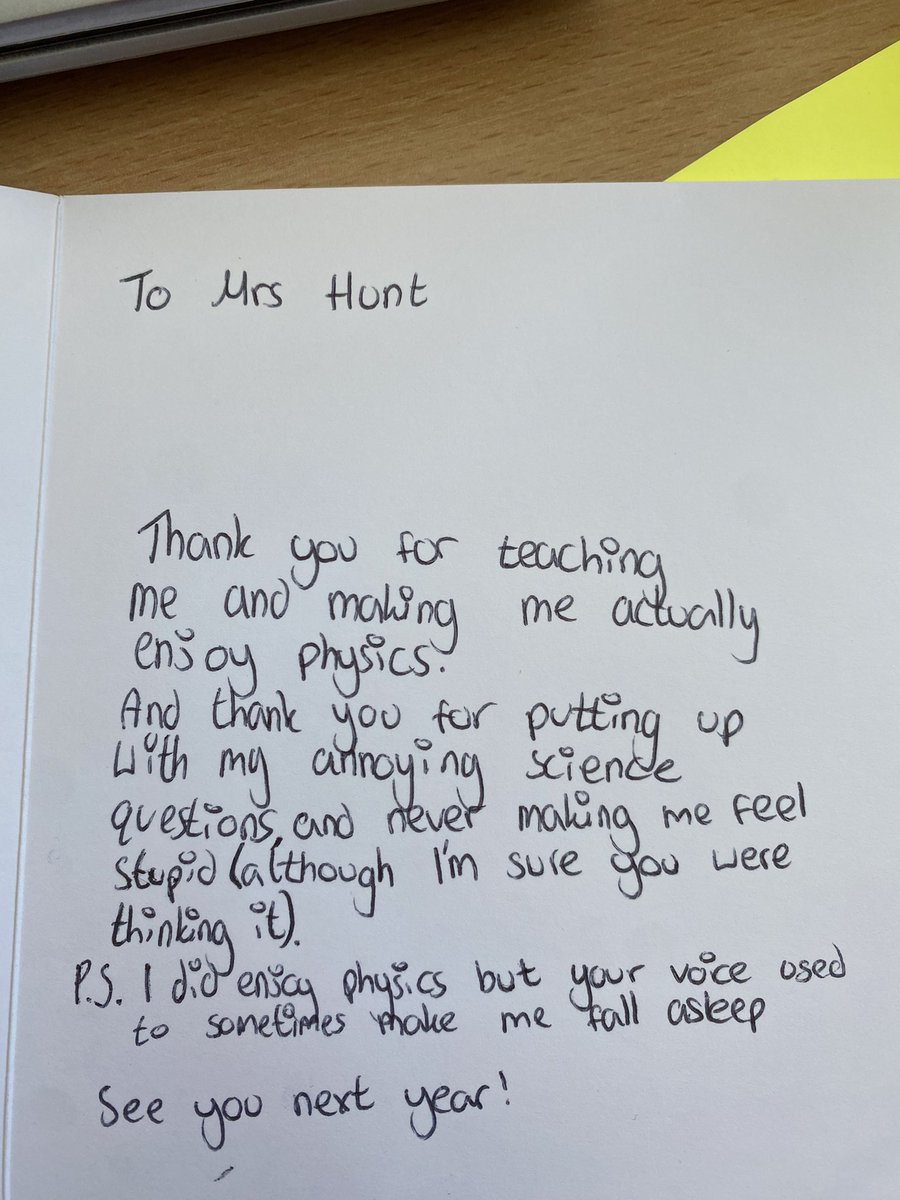 To Mrs Hunt
Thank you for teaching
me and making me actually
enjoy physics.
And thank you for putting up
with my annoying science
questions, and never making me feel
stupid (although I'm sure you were
thinking it).
P.S. I did enjoy physics but your voice used
to sometimes make me fall asleep
See you next year!